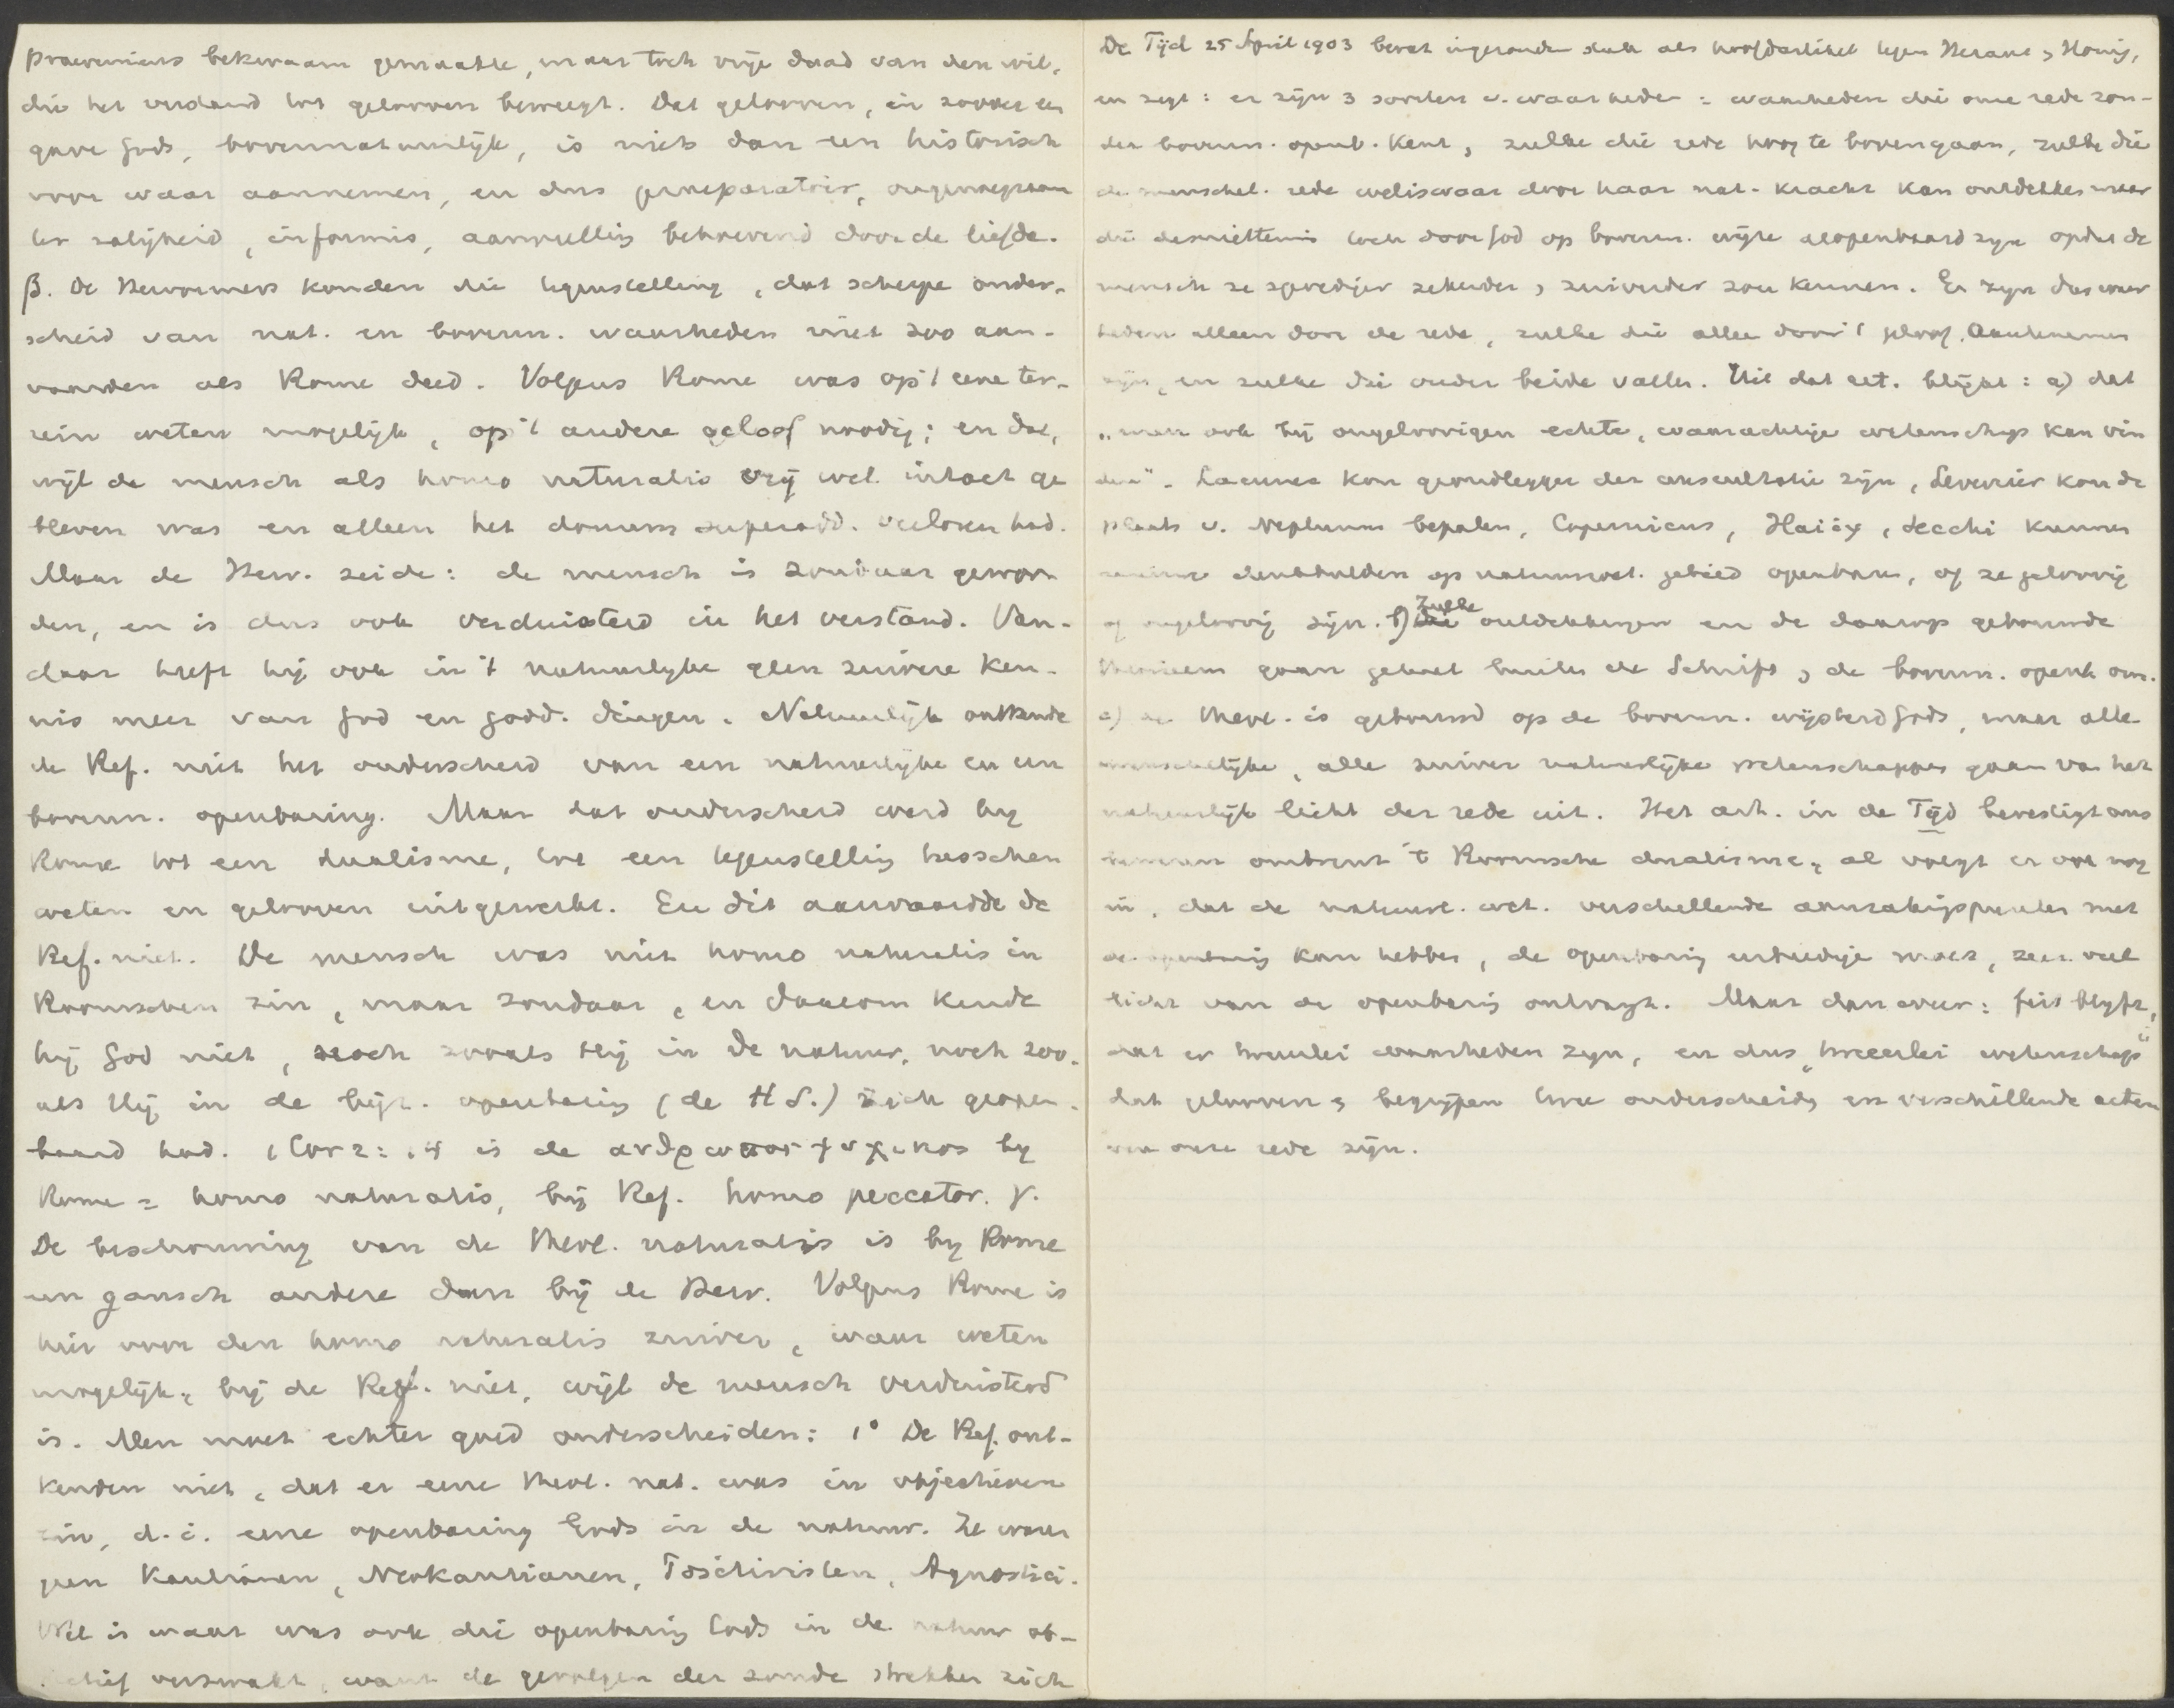 praeveniens bekwaam gemaakte, maar toch vrije daad van den wil,
die het verstand tot gelooven beweegt. Dat gelooven, in zoover een
gave Gods, bovennatuurlijk, is niets dan een historisch
voor waar aannemen, en dus praeparatoir, ongenoegzaam
ter zaligheid, informis, aanvulling behoevend door de liefde.
β. De Hervormers konden die tegenstelling, dat scherpe onder-
scheid van nat. en bovenn. waarheden niet zoo aan-
vaarden als Rome deed. Volgens Rome was op 't eene ter-
rein weten mogelijk, op 't andere geloof noodig; en dat,
wijl de mensch als homo naturalis vrij wel intact ge
bleven was en alleen het donum superadd. verloren had.
Maar de Herv. zeide: de mensch is zondaar gewor
den, en is dus ook verduisterd in het verstand. Van-
daar heeft hij ook in 't natuurlijke geen zuivere ken-
nis meer van God en godd. dingen. Natuurlijk ontkende
de Ref. niet het onderscheid van een natuurlijke en een
bovenn. openbaring. Maar dat onderscheid werd bij
Rome tot een dualisme, tot een tegenstelling tusschen
weten en gelooven uitgewerkt. En dit aanvaardde de
Ref. niet. De mensch was niet homo naturalis in
Roomschen zin, maar zondaar, en daarom kende
hij God niet, noch zooals Hij in de natuur, noch zoo-
als Hij in de bijz. openbaring (de H S.) zich geopen-
baard had. 1 Cor 2:14 is de ανθρωπος ψυχικος bij
Rome = homo naturalis, bij Ref. homo peccator. γ.
De beschouwing van de theol. naturalis is bij Rome
een gansch andere dan bij de Herv. Volgens Rome is
hier voor den homo naturalis zuiver, waar weten
mogelijk; bij de Ref. niet, wijl de mensch verduisterd
is. Men moet echter goed onderscheiden: 1° De Ref. ont-
kenden niet, dat er eene theol. nat. was in objectieven
zin, d.i. eene openbaring Gods in de natuur. Ze waren
geen Kantianen, Neokantianen, Positivisten, Agnostici.
Wel is waar was ook die openbaring Gods in de natuur ob-
jectief verzwakt, want de gevolgen der zonde strekken zich
De Tijd 25 April 1903 bevat ingezonden stuk als hoofdartikel tegen Heraut & Honig,
en zegt: er zijn 3 soorten v. waarheden: waarheden die onze rede zon-
der bovenn. openb. kent, zulke die rede hoog te bovengaan, zulke die
de menschel. rede weliswaar door haar nat. kracht kan ontdekken maar
die desniettemin toch door God op bovenn. wijze geopenbaard zijn opdat de
mensch ze spoediger zekerder & zuiverder zou kennen. Er zijn dus waar
heden alleen door de rede, zulke die alleen door 't geloof aan te nemen
zijn, en zulke die onder beide vallen. Uit dat art. blijkt: a) dat
„men ook bij ongeloovigen echte, waarachtige wetenschap kan vin
den". Laennec kon grondlegger der auscultatie zijn, Leverrier kon de
plaats v. Neptunus bepalen, Copernicus, Haüy, Secchi kunnen
nieuwe denkbeelden op natuurwet. gebied openbaren, of ze geloovig
of ongeloovig zijn. b) Zulke ontdekkingen en de daarop gebouwde
theorieen gaan geheel buiten de Schrift & de bovenn. openb om.
c) de theol. is gebouwd op de bovenn. wijsheid Gods, maar alle
menschelijke, alle zuiver natuurlijke wetenschappen gaan van het
natuurlijk licht der rede uit. Het art. in de Tijd bevestigt ons
omtrent 't Roomsche dualisme; al voegt er ook nog
in, dat de natuurl. wet. verschillende aanrakingspunten met
de openbaring kan hebben, de openbaring eerbiedigen moet, zeer veel
licht van de openbaring ontvangt. Maar dan weer: feit blijft,
dat er tweeërlei waarheden zijn, en dus „tweeerlei wetenschap"
dat gelooven & begrijpen twee onderscheiden en verschillende acten
van onze rede zijn.